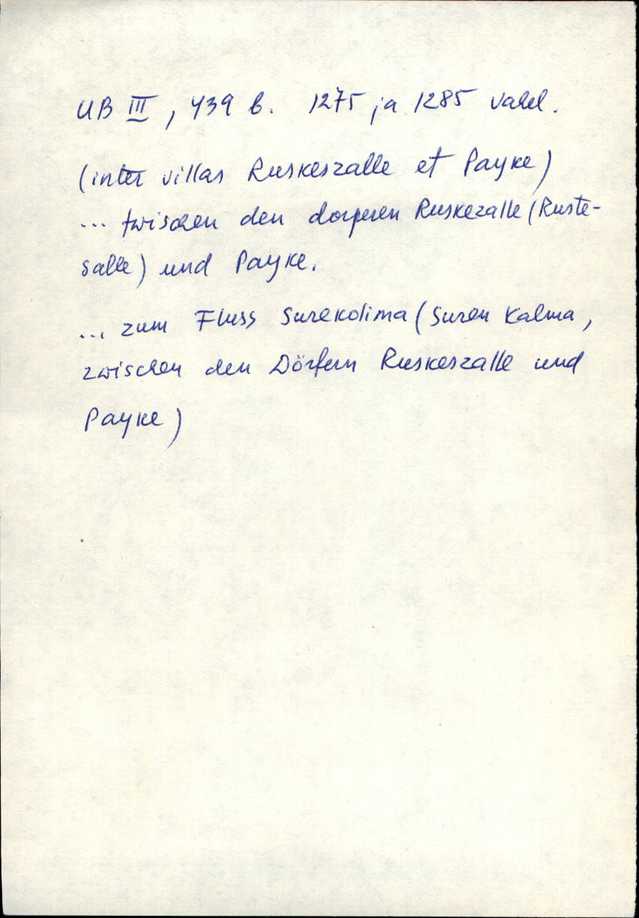 UB III, 439 b. 1275 ja 1285 vahel.
(inter villas Ruskeszalle et Payke)
... twischen den dorperen Ruskezalle (Ruste-
salle) und Payke.
... zum Fluss Surekolima (Suren Kalma,
zwischen den Dörfern Ruskeszalle und
Payke)